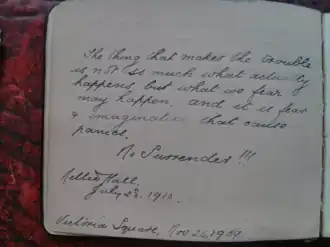 The thing that makes the trouble
is not so much what actually
happens, but what we fear
may happen, and it is fear
& imagination that cause
panics.
No Surrender!!!
Nellie Hall.
July 23. 1910.
Victoria Square, Nov 26 1909